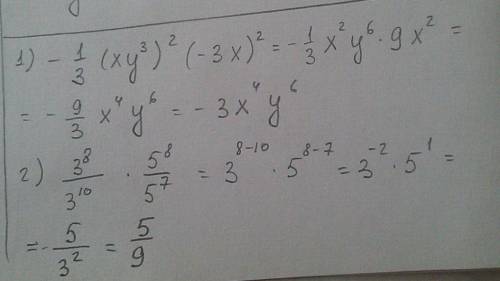 1) - 1/3 (xy³)² (-3x)² = - 1/3 x² y⁶ · 9x² =
= - 9/3 x⁴ y⁶ = - 3x⁴ y⁶
2) 3⁸/3¹⁰ · 5⁸/5⁷ = 3⁸⁻¹⁰ · 5⁸⁻⁷ = 3⁻² · 5¹ =
= 5/3² = 5/9